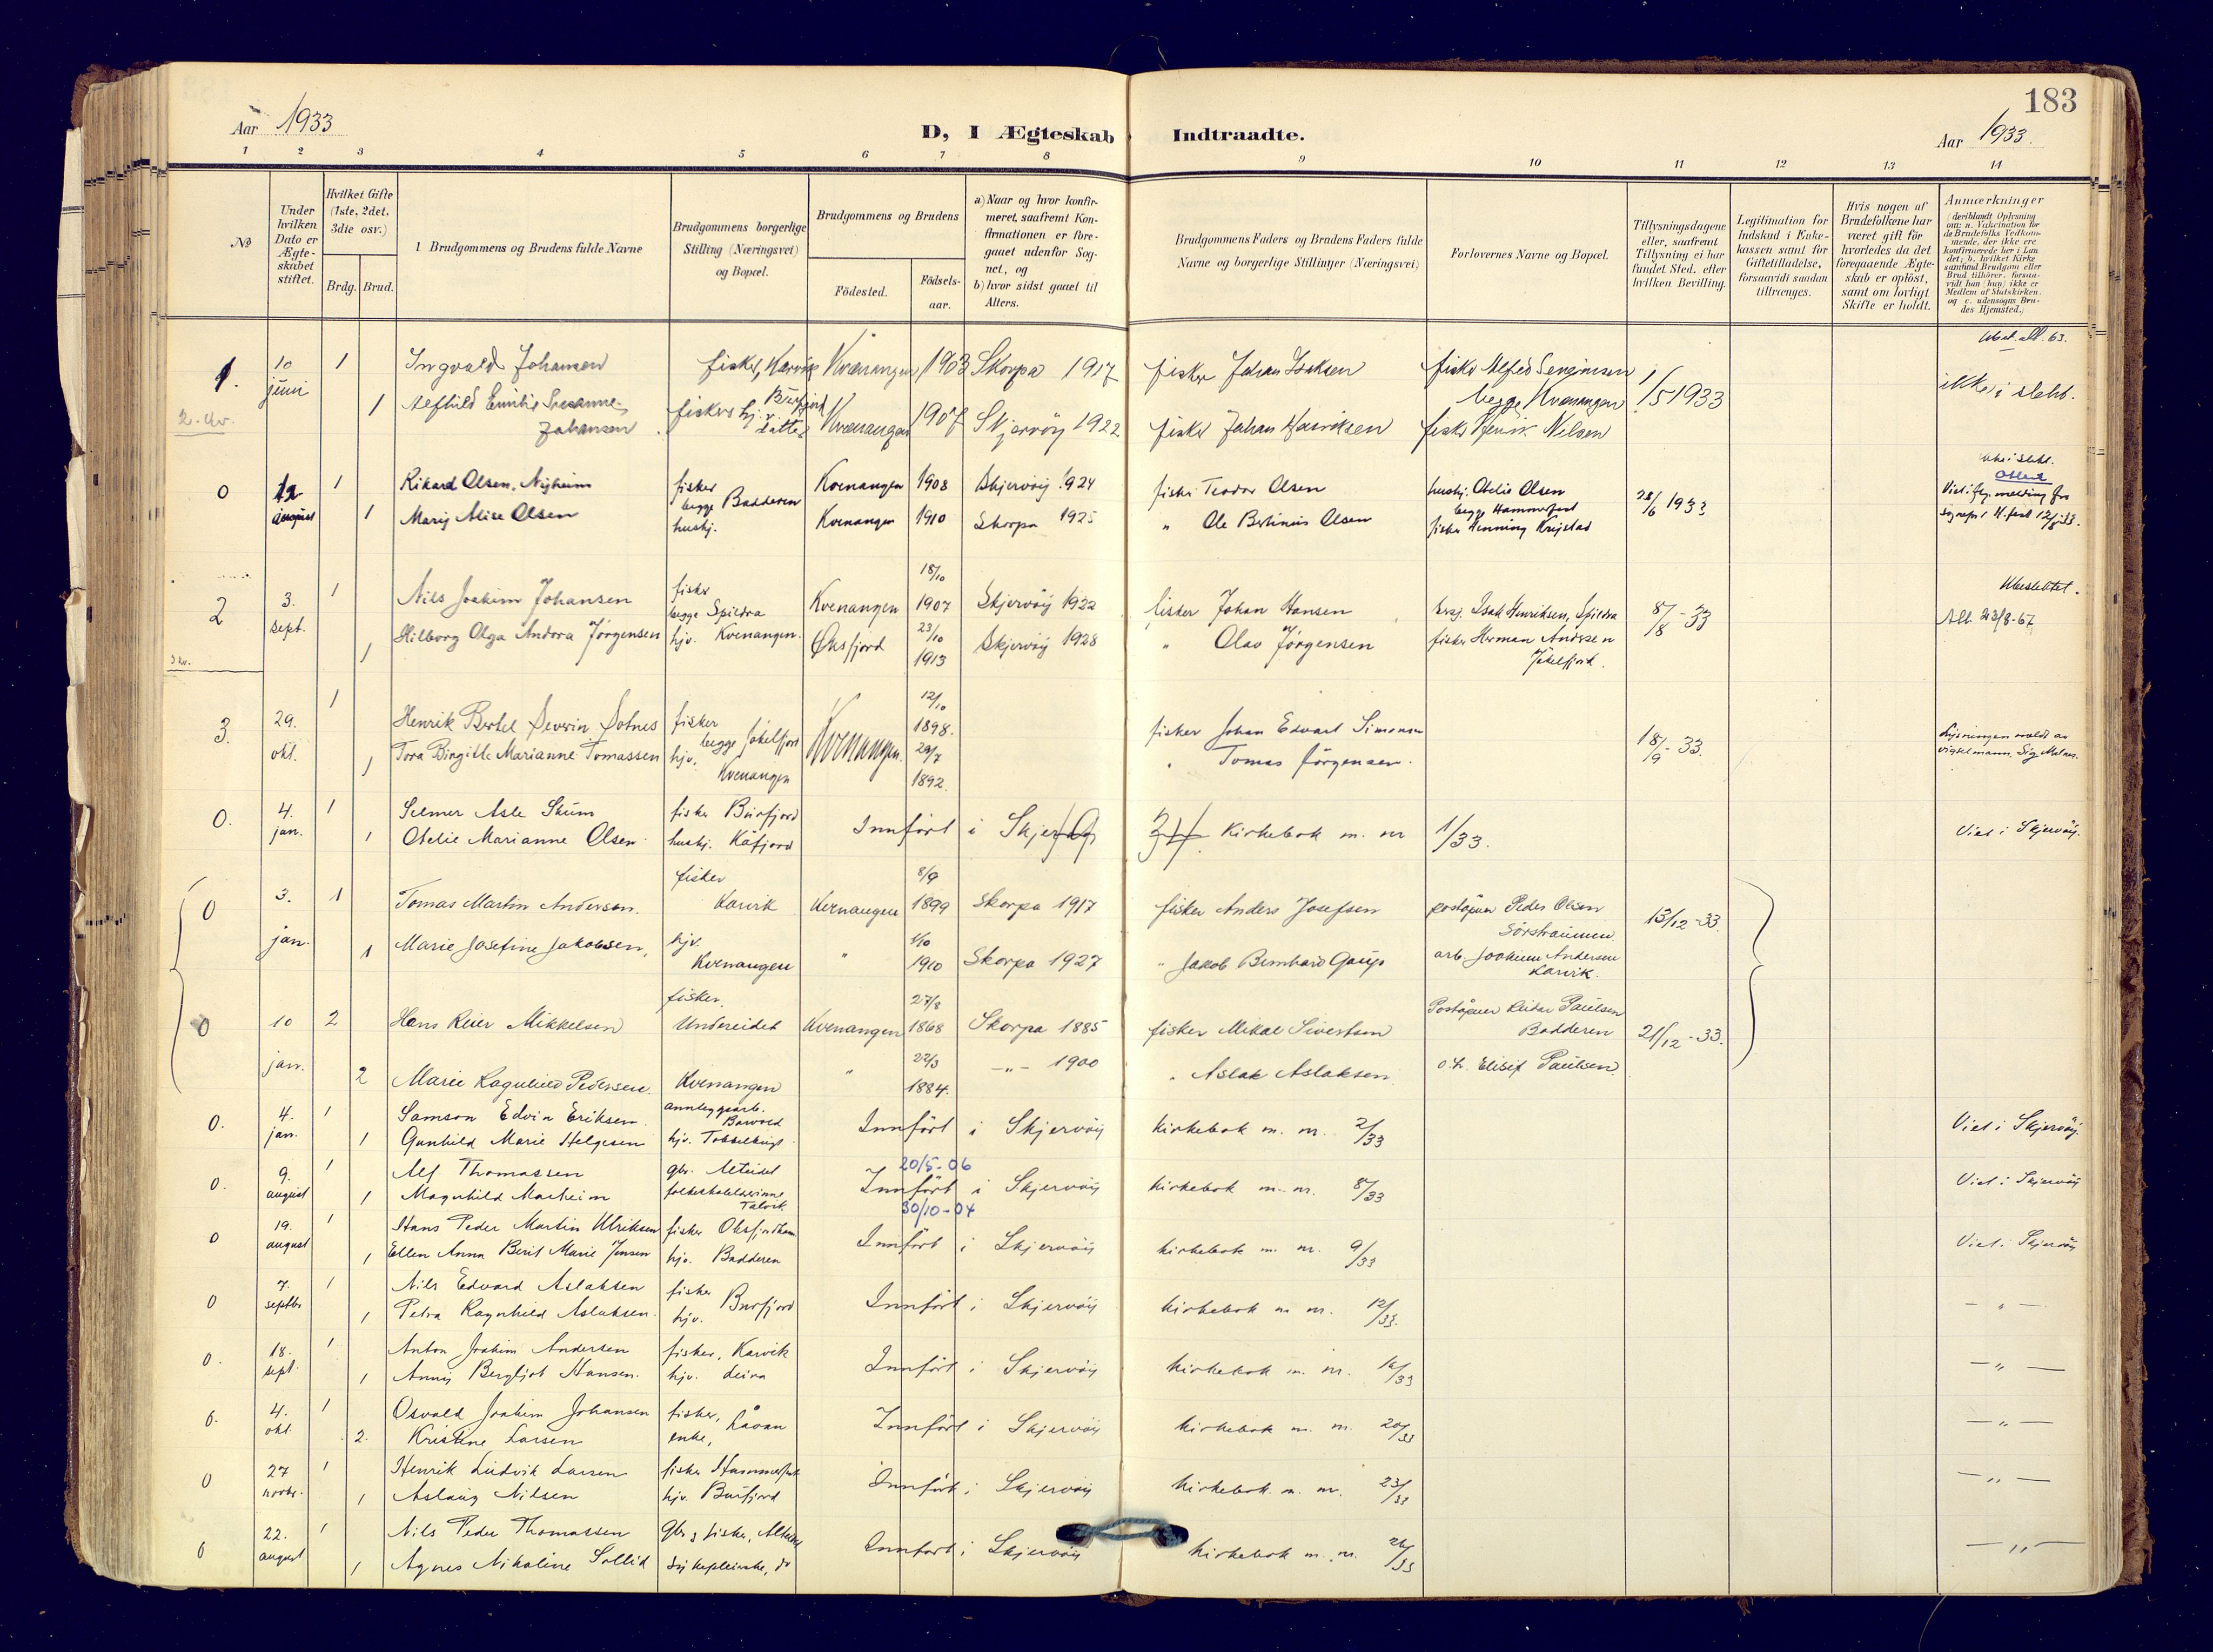 183
Aar 1933
D, I Ægteskab Indtraadte.
Aar 1933.
1 2 3 4 5 6 7 8 9 10 11 12 13 14
No
Under hvilken Dato er Ægteskabet stiftet.
Hvilket Gifte (1ste, 2det, 3die osv.)
Brdg. Brud.
1 Brudgommens og Brudens fulde Navne
Brudgommens borgerlige Stilling (Næringsvei) og Bopæl.
Brudgommens og Brudens
Födested.
Födselsaar.
a) Naar og hvor konfirmeret, saafremt Konfirmationen er foregaaet udenfor Sognet, og
b) hvor sidst gaaet til Alters.
Brudgommens Faders og Brudens Faders fulde Navne og borgerlige Stillinger (Næringsvei)
Forlovernes Navne og Bopæl.
Tillysningsdagene eller, saafremt Tillysning ei har fundet Sted, efter hvilken Bevilling.
Legitimation for Indskud i Enkekassen samt for Giftetilladelse, forsaavidt saadan tiltrænges.
Hvis nogen af Brudefolkene har været gift för, hvorledes da det foregaaende Ægteskab er oplöst, samt om lovligt Skifte er holdt.
Anmærkninger
(deriblandt Oplysning om: a. Vakcination for de Brudefolks Vedkommende, der ikke ere konfirmerede her i Landet; b. hvilket Kirkesamfund Brudgom eller Brud tilhörer, forsaavidt han (hun) ikke er Medlem af Statskirken, og c. udensogns Brudes Hjemsted.)
1. 10 juni 1 Ingvald Johansen fisker, Karvik Kvænangen 1903 Skorpa 1917 fisker Johan Isaksen fisker Alfred
1 Johansen fiskers Burfjord datter Kvænangen 1907 Skjervöy 1922 fisker Johan Henriksen begge Kvænangen fisker Henrik Nilsen 1/5 1933
ikke i slekt.
2. kv.
0 12 august 1 Rikard Olsen, Nyheim fisker begge Badderen Kvenangen 1908 Skjervöy 1924 fisker Teodor Olsen hushj. Otelie Olsen 28/6 1933
1 Mary Alise Olsen hushj. Kvenangen 1910 Skorpa 1925 " Ole Bertinius Olsen begge Hammerfest fisker Henning
ikke i slekt.
Viet iflg. melding fra sognepr. i H.fest 12/8 33.
2 3. sept. 1 Nils Joakim Johansen fisker begge Spildra Kvenangen 18/10 1907 Skjervöy 1922 fisker Johan Hansen Isak Henriksen, Spildra 8/8-33
1 Hilborg Olga Andora Jørgensen hjv. Kvenangen. Øksfjord 23/10 1913 Skjervöy 1928 " Olav Jörgensen fisker Herman Andrsen Jökelfjord.
Ubeslektet.
Att. 23/8-67
3 kv.
3. 29. okt. 1 Henrik Bertel Severin Sotnes fisker begge Jökelfjord Kvenangen. 12/10 1898. fisker Johan Edvart Simonsen 18/9-33.
1 Tora Birgitte Marianne Tomassen hjv. Kvenangen 29/7 1892. " Tomas Jörgensen.
Lysningen meldt av
0. 4. jan. 1 Selmer Asle Skum fisker Burfjord Innfört i Skjervöy Kirkebok m. nr 1/33. Viet i Skjervöy.
1 Otelie Marianne Olsen hushj. Kåfjord
0 3. jan. 1 Tomas Martin Andersen. fisker Karvik Kvenangen 8/9 1899 Skorpa 1917 fisker Anders Josefsen poståpner Peder Olsen Sörstraumen. 13/12-33.
1 Marie Josefine Jakobsen, hjv. Kvenangen " 1/10 1910 Skorpa 1927 " Jakob Bernhard Gaup arb. Joakim Andersen Karvik.
0 10 jan. 2 Hans Reier Mikkelsen fisker. Undereidet Kvenangen 27/8 1868 Skorpa 1885 fisker Mikal Sivertsen Poståpner Reidar Paulsen Badderen 21/12-33.
2 Marie Ragnhild Pedersen. Kvenangen " 22/3 1884. -"- 1900 " Aslak Aslaksen Elisif Paulsen.
0. 4. jan. 1 Samson Edvin Eriksen anleggsarb. Innfört i Skjervöy kirkebok m. nr. 2/33 Viet i Skjervöy.
1 Gunhild Marie Helgesen hjv.
0. 9. august 1 Alf Thomassen gbr. Alteidet 20/5-06 Innfört i Skjervöy kirkebok m. nr. 8/33 Viet i Skjervöy
1 Magnhild Marheim folkeskolelærerinne Talvik 30/10-04
0 19. august 1 Hans Peder Martin Ulriksen fisker Oksfjordhamn Innfört i Skjervöy kirkebok m. nr. 9/33 Viet i Skjervöy
1 Ellen Anna Berit Marie Jensen hjv. Badderen
0 7. septbr 1 Nils Edvard Aslaksen fisker Burfjord Innfört i Skjervöy kirkebok m nr. 12/33. - " -
1 Petra Ragnhild Aslaksen. hjv.
0. 18. sept. 1 Anton Joakim Andersen fisker, Karvik Innfört i Skjervöy kirkebok m. nr. 16/33 - " -
1 Anny Bergljot Hansen. hjv.
0. 4. okt. 1 Osvald Joakim Johansen fisker, Låvan Innfört i Skjervöy kirkebok m. nr. 20/33 - " -
2. Kristine Larsen enke,
0 27 novbr. 1 Henrik Ludvik Larsen fisker Hammerfest Innfört i Skjervöy kirkebok m. nr. 23/33 - " -
1 Aslaug Nilsen hjv. Burfjord
0 22. august 1 Nils Peder Thomassen gbr. & fisker, Alteidet Innfört i Skjervöy kirkebok m. nr. 26/33 - " -
1 Agnes Nikoline Sollid sykepleierske, do